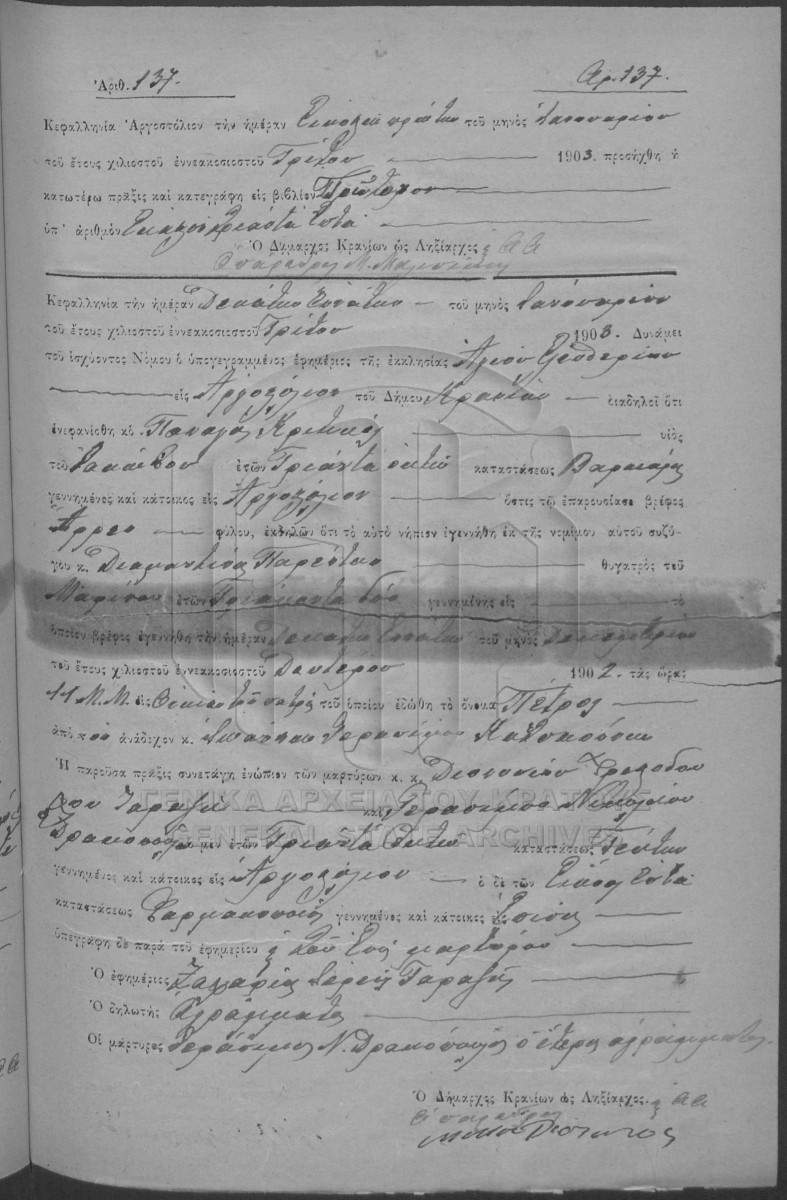 Ἀριθ. 137.
Αρ. 137.
Κεφαλληνία Ἀργοστόλιον τὴν ἡμέραν Εικοστὴν πρώτην τοῦ μηνὸς Ιανουαρίου
τοῦ ἔτους χιλιοστοῦ ἐννεακοσιοστοῦ Τρίτου 1903. προσήχθη ἡ
κατωτέρω πρᾶξις καὶ κατεγράφη εἰς βιβλίον Πρῶτον
ὑπ' ἀριθμὸν Εκατον τριάντα επτά
Ὁ Δήμαρχος Κρανίων ὡς Ληξίαρχος
Κεφαλληνία τὴν ἡμέραν Δεκάτην ενάτην τοῦ μηνὸς Ιανουαρίου
τοῦ ἔτους χιλιοστοῦ ἐννεακοσιοστοῦ Τρίτου 1903. Δυνάμει
τοῦ ἰσχύοντος Νόμου ὁ ὑπογεγραμμένος ἐφημέριος τῆς ἐκκλησίας Αγίου Ελευθερίου
εἰς Αργοστόλιον τοῦ Δήμου Κρανίων διαδηλοῖ ὅτι
ἐνεφανίσθη κὸ Παναγῆς Κρητικός υἱὸς
τοῦ ἐτῶν Τριάντα οκτώ καταστάσεως Βαρκάρης
γεννημένος καὶ κάτοικος εἰς Αργοστόλιον ὅστις τῷ ἐπαρουσίασε βρέφος
Άρρεν φύλου, ἐκδηλῶν ὅτι τὸ αὐτὸ νήπιον ἐγεννήθη ἐκ τῆς νομίμου αὐτοῦ συζύ-
γου κ. Διαμαντίνας θυγατρὸς τοῦ
Μαρίνου ἐτῶν Τριάκοντα δύο γεννημένης εἰς τὸ
ὁποῖον βρέφος ἐγεννήθη τὴν ἡμέραν Δεκάτην ενάτην τοῦ μηνὸς Δεκεμβρίου
τοῦ ἔτους χιλιοστοῦ ἐννεακοσιοστοῦ Δευτέρου 1902. τὰς ὥρας
11 Μ.Μ. εἰς Οικίαν τοῦ πατρός τοῦ ὁποίου ἐδώθη τὸ ὄνομα Πέτρος
ἀπὸ τὸν ἀνάδοχον κ.
Ἡ παροῦσα πρᾶξις συνετάγη ἐνώπιον τῶν μαρτύρων κ. κ. Διονυσίου
καὶ Γερασίμου Νικολάου
Δρακοπούλου μὲν ἐτῶν Τριάντα Οκτώ καταστάσεως
γεννημένος καὶ κάτοικος εἰς Αργοστόλιον ὁ δὲ τῶν Είκοσι Επτά
καταστάσεως Φαρμακοποιός γεννημένος καὶ κάτοικος εἰς Επίσης
ὑπεγράφη δὲ παρὰ τοῦ ἐφημερίου & τοῦ Ενός μαρτύρου
Ὁ ἐφημέριος Ζαχαρίας Ιερεύς
Ὁ δηλωτὴς Αγράμματος
Οἱ μάρτυρες Γεράσιμος Ν. Δρακόπουλος ὁ έτερος αγράμματος.
Ὁ Δήμαρχος Κρανίων ὡς Ληξίαρχος.
ΓΕΝΙΚΑ ΑΡΧΕΙΑ ΤΟΥ ΚΡΑΤΟΥΣ
GENERAL STATE ARCHIVES